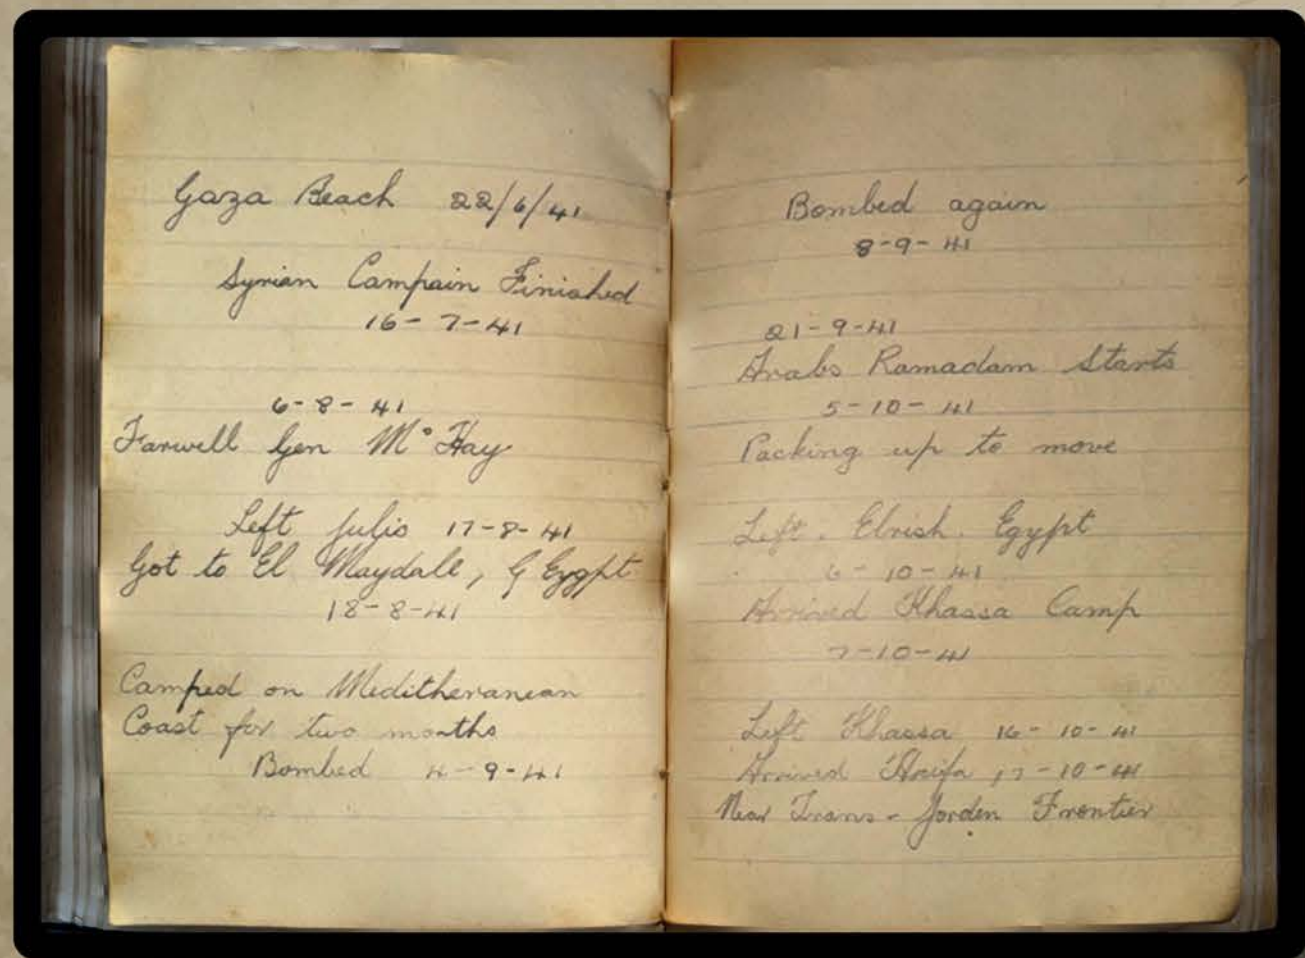 Gaza Beach 22/6/41
Syrian Campain Finished
16-7-41
6-8-41
Farwell Gen Mc Hay
Left Julis 17-8-41
Got to El Maydale, Egypt
18-8-41
Camped on Meditheranean
Coast for two months
Bombed 4-9-41
Bombed again
8-9-41
21-9-41
Arabs Ramadam Starts
5-10-41
Packing up to move
Left. Elrish. Egypt
6-10-41
Arrived Khassa Camp
7-10-41
Left Khassa 16-10-41
Arrived Haifa 17-10-41
Near Trans-Jorden Frontier